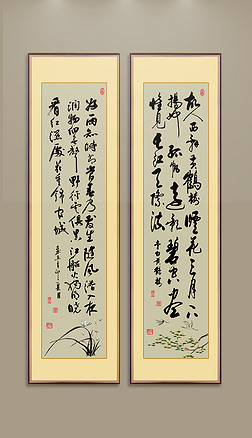 故人西辭黃鶴樓煙花三月下
揚州孤帆遠影碧空盡
惟見長江天際流
李白黃鶴樓
好雨知時節當春乃發生隨風潛入夜
潤物細無聲野徑雲俱黑江船火獨明曉
看紅濕處花重錦官城